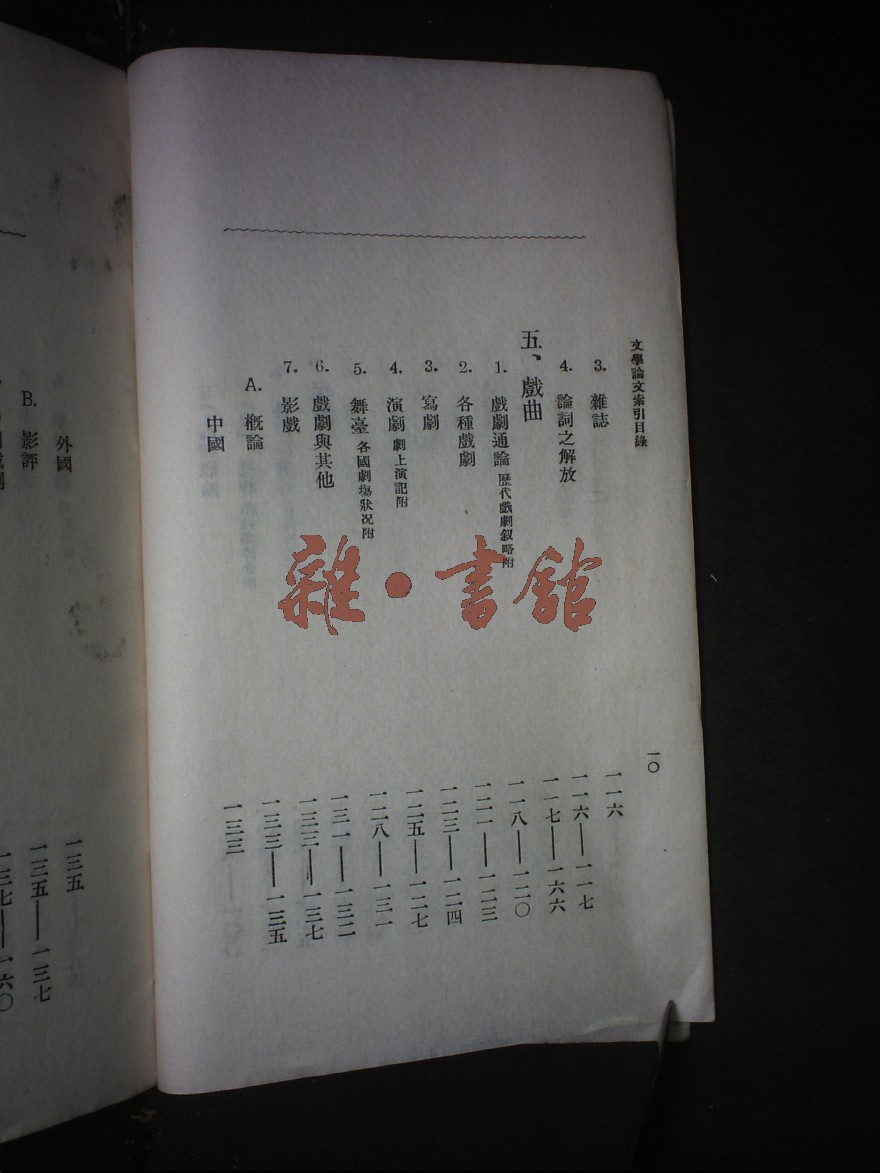 文學論文索引目錄 一〇
3. 雜誌 一一六
4. 論詞之解放 一一六——一一七
五、戲曲 一一七——一六六
1. 戲劇通論 歷代戲劇叙略附 一一八——一二〇
2. 各種戲劇 一二一——一二三
3. 寫劇 一二三——一二四
4. 演劇 劇上演記附 一二五——一二七
5. 舞臺 各國劇塲狀况附 一二八——一三一
6. 戲劇與其他 一三一——一三二
7. 影戲 一三三——一三七
A. 概論 一三三——一三五
中國 一三三
外國 一三五
B. 影評 一三五——一三七
一三七——一六〇
雜·書館